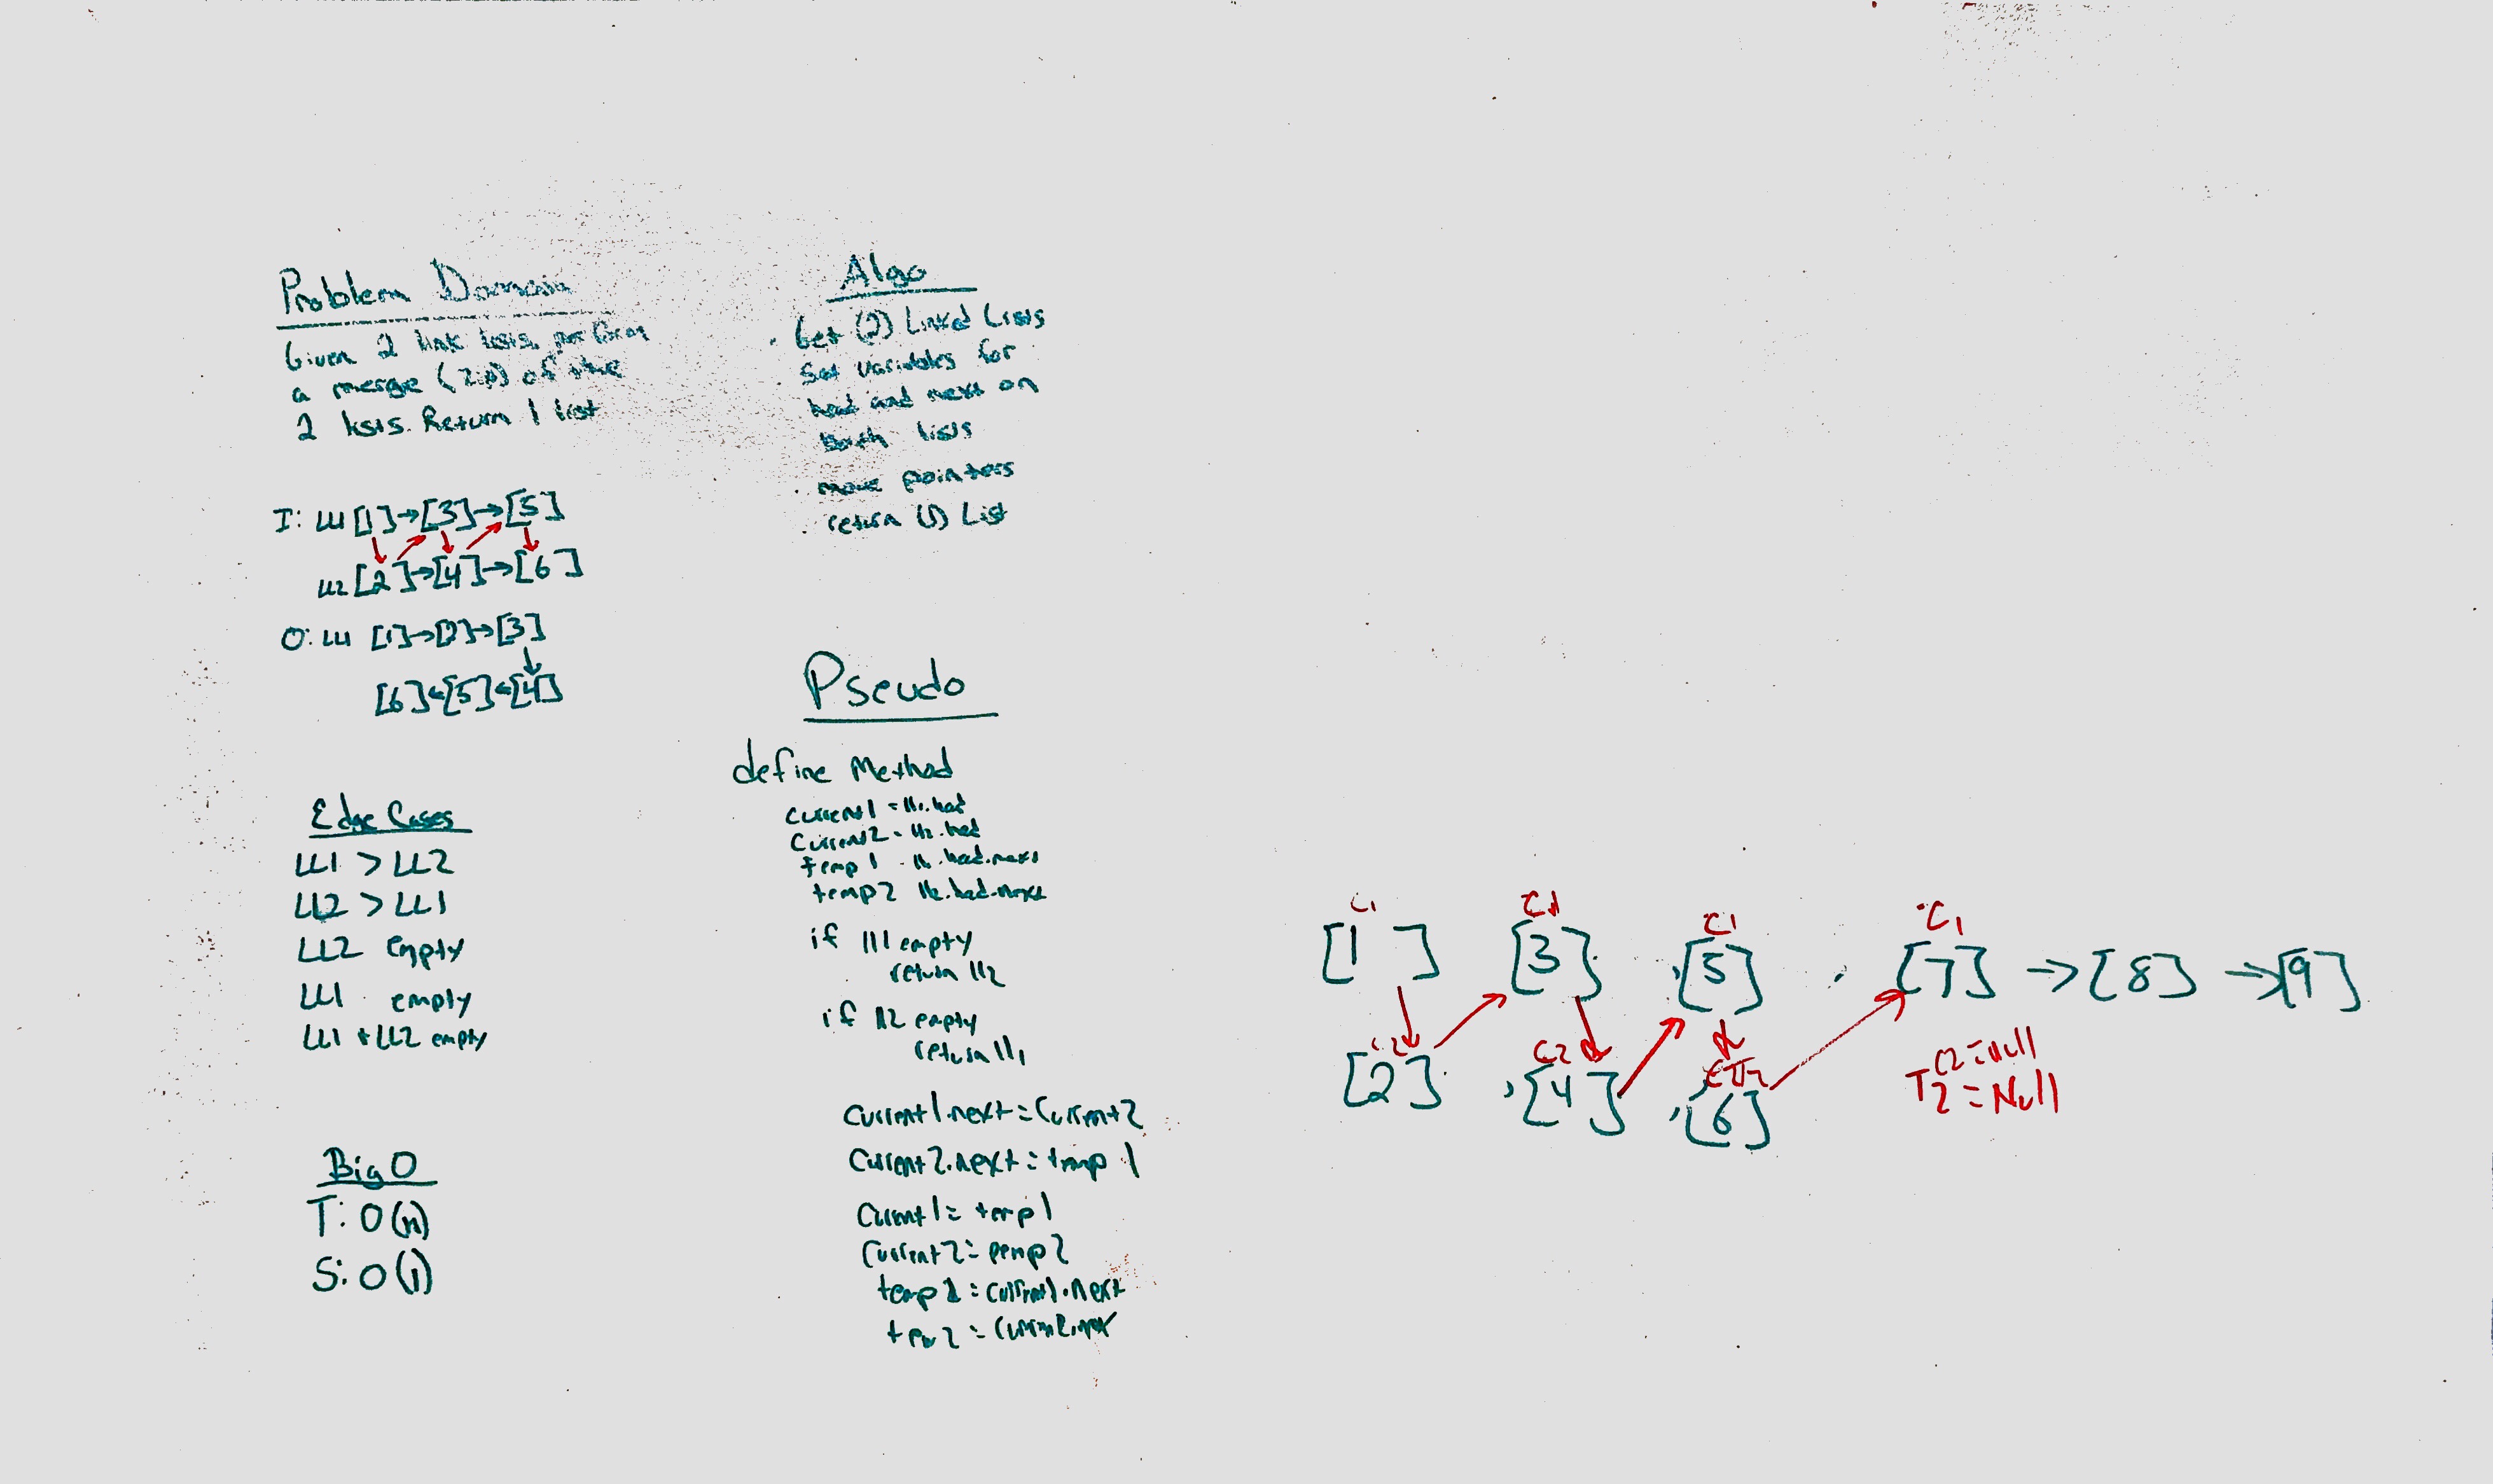 Problem Domain
Given 2 link lists, perform
a merge (zip) of the
2 lists. Return 1 list
I: LL1 [1]→[3]→[5]
LL2 [2]→[4]→[6]
O: LL1 [1]→[2]→[3]
[6]←[5]←[4]
Edge Cases
LL1 > LL2
LL2 > LL1
LL2 empty
LL1 empty
LL1 + LL2 empty
Big O
T: O(n)
S: O(1)
Algo
Get (2) Linked Lists
Set variables for
head and next on
both lists
move pointers
return (1) List
Pseudo
define Method
current1 = ll1.head
current2 = ll2.head
temp1 - ll1.head.next
temp2 ll2.head.next
if ll1 empty
return ll2
if ll2 empty
return ll1
current1.next = current2
current2.next = temp 1
current1 = temp1
current2 = temp2
temp1 = current1.next
= current2.next
C1 C1 C1 C1
[1 ] [3] ,[5] [7] → [8] →[9]
C2 C2
C2 = null
T2 = Null
[2] ,[4] ,[6]